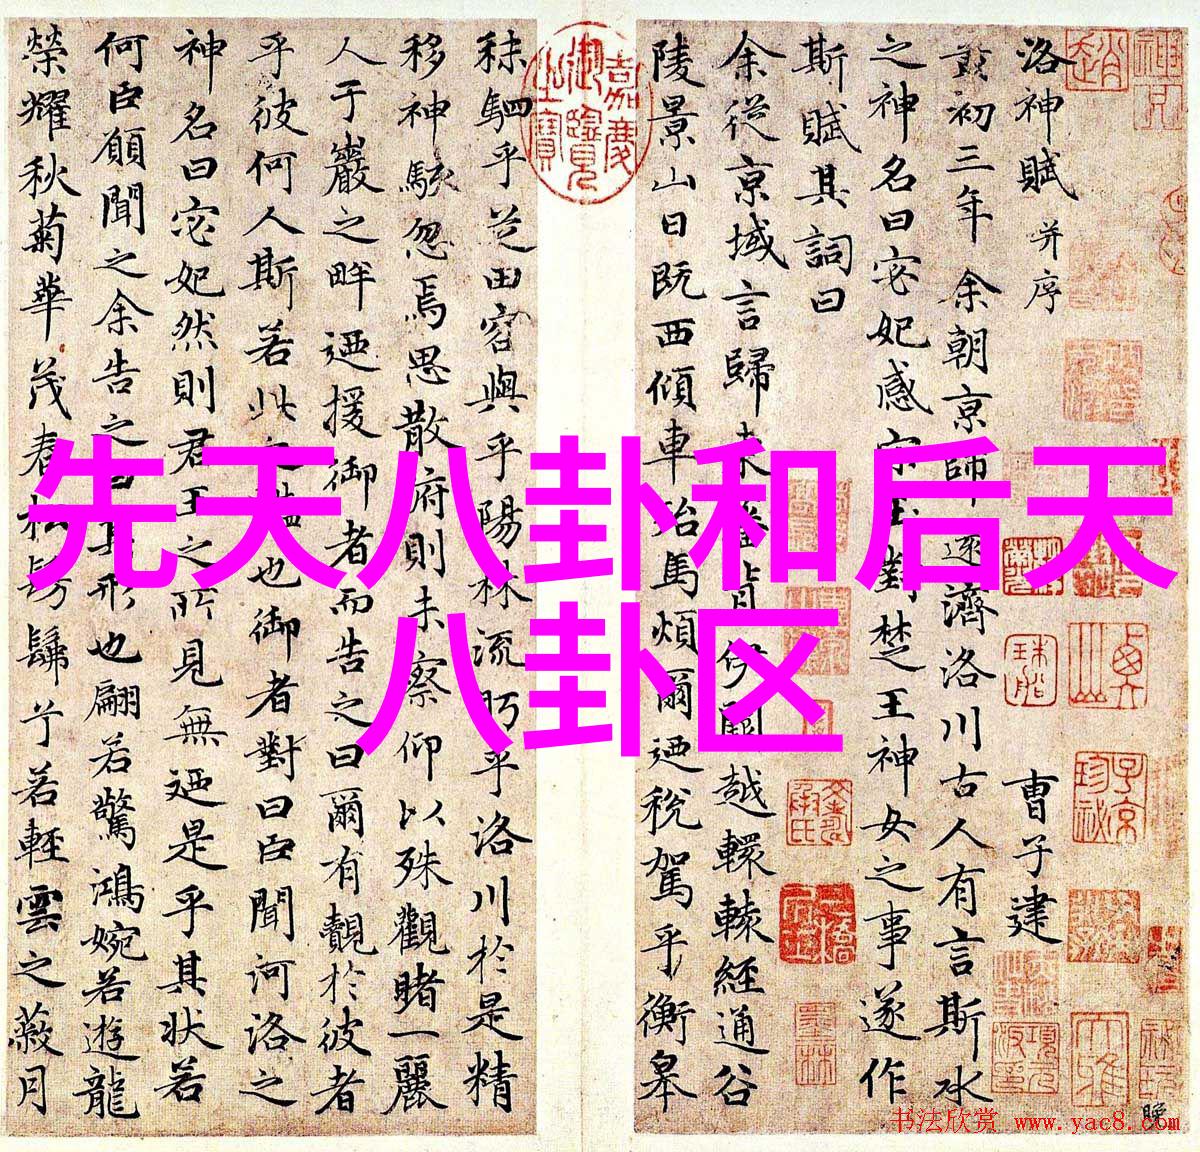 先天八卦和后天
八卦区
洛神賦 并序 曹子建
黃初三年余朝京師還濟洛川古人有言斯水
之神名曰宓妃感宋玉對楚王神女之事遂作
斯賦其詞曰
余從京域言歸東藩背伊闕越轘轅經通谷
陵景山日既西傾車殆馬煩爾迺稅駕乎衡皋
秣駟乎芝田容與乎陽林流眄乎洛川於是精
移神駭忽焉思散府則未察仰以殊觀睹一麗
人于巖之畔迺援御者而告之曰爾有覿於彼者
乎彼何人斯若此之豔也御者對曰臣聞河洛之
神名曰宓妃然則君王之所見無迺是乎其状若
何臣願聞之余告之曰其形也翩若驚鴻婉若遊龍
榮耀秋菊華茂春松髣髴兮若輕雲之蔽月
嘉慶御覽之寶
书法欣赏 www.yac8.com